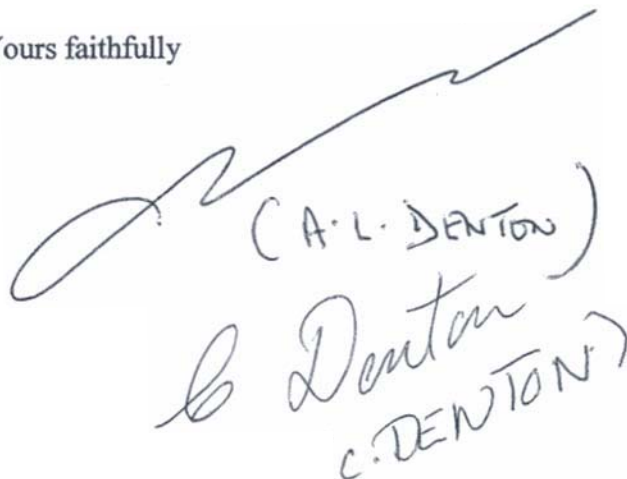 Yours faithfully
(A. L. DENTON)
C Denton
C. DENTON)